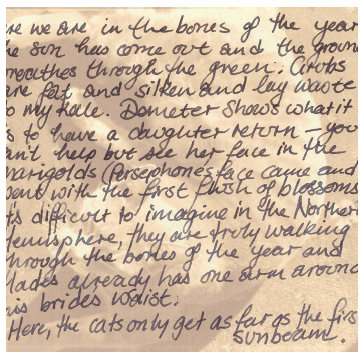 re we are in the bones of the year
he sun has come out and the groun
reathes through the green. Grubs
are fat and silken and lay waste
o my kale. Demeter shows what it
s to have a daughter return – you
an't help but see her face in the
marigolds (Persephones face came and
went with the first flush of blossoms
ts difficult to imagine in the Northern
Hemisphere, they are truly walking
through the bones of the year and
Hades already has one arm around
his brides waist.
Here, the cats only get as far as the firs
sunbeam.